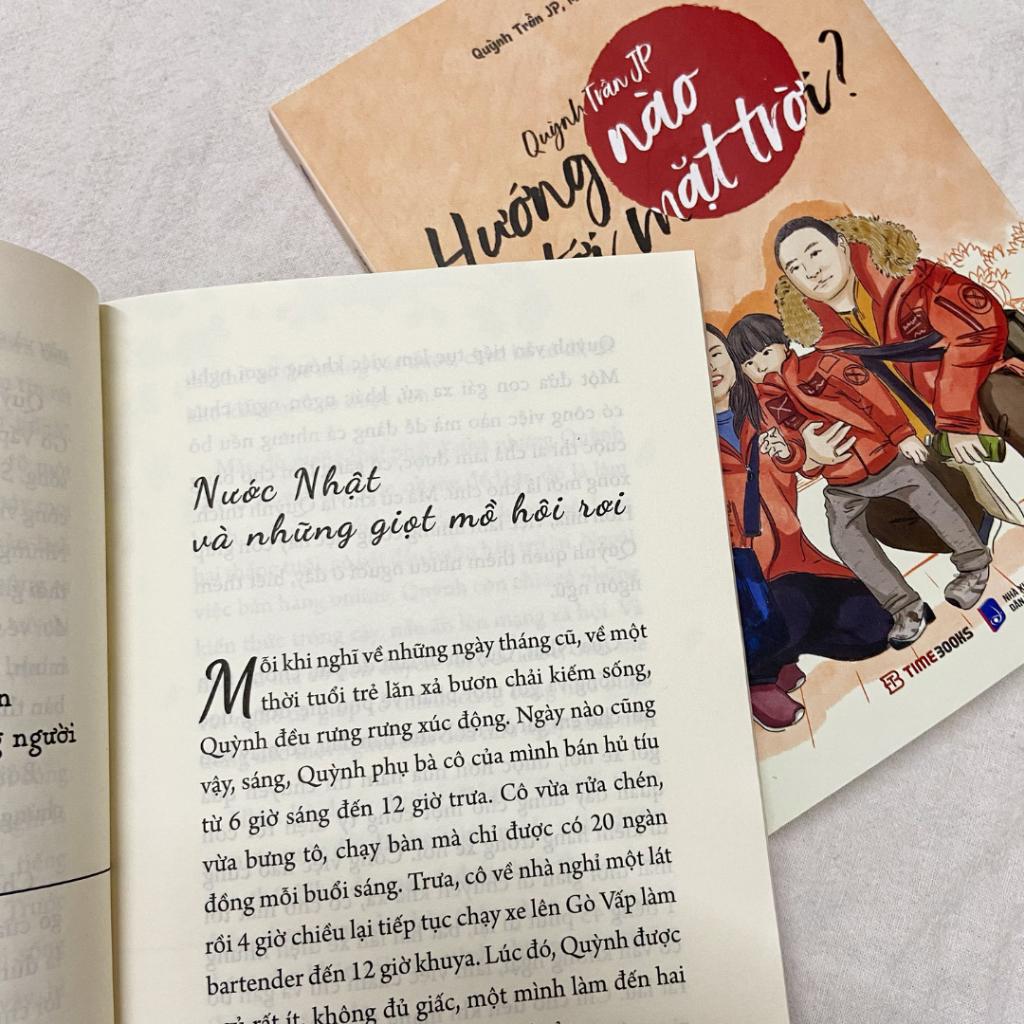 Quỳnh Trần JP,
Quỳnh Trần JP
Hướng nào
tới mặt trời?
TIMEBOOKS
NHÀ
DÂN
Nước Nhật
và những giọt mồ hôi rơi
Mỗi khi nghĩ về những ngày tháng cũ, về một
thời tuổi trẻ lăn xả bươn chải kiếm sống,
Quỳnh đều rưng rưng xúc động. Ngày nào cũng
vậy, sáng, Quỳnh phụ bà cô của mình bán hủ tíu
từ 6 giờ sáng đến 12 giờ trưa. Cô vừa rửa chén,
vừa bưng tô, chạy bàn mà chỉ được có 20 ngàn
đồng mỗi buổi sáng. Trưa, cô về nhà nghỉ một lát
rồi 4 giờ chiều lại tiếp tục chạy xe lên Gò Vấp làm
bartender đến 12 giờ khuya. Lúc đó, Quỳnh được
rất ít, không đủ giấc, một mình làm đến hai
người